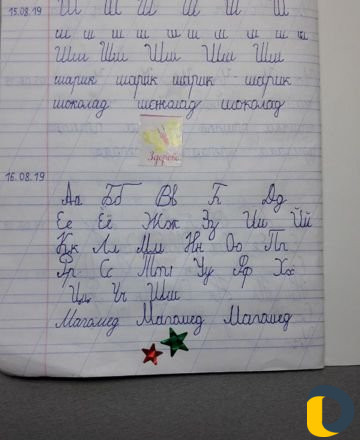 15.08.19
Ш Ш Ш Ш Ш Ш
ш ш ш ш ш ш ш ш ш
Шш Шш Шш Шш Шш
шарик шарик шарик шарик
шоколад шоколад шоколад
Здорово
16.08.19
Аа Бб Вв Г Дд
Ее Ёё Жж Зз Ии Йй
Кк Лл Мм Нн Оо Пп
Рр Сс Тт Уу Фф Хх
Цц Чч Шш
Магомед Магомед Магомед